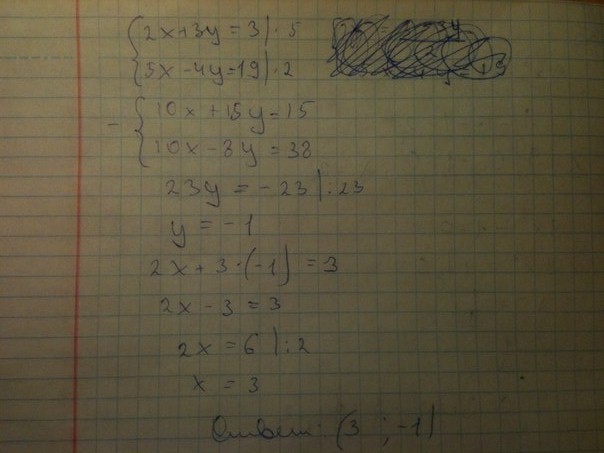 { 2x+3y = 3 | · 5
{ 5x - 4y = 19 | · 2
- { 10x + 15y = 15
{ 10x - 8y = 38
23y = -23 | : 23
y = -1
2x + 3 · (-1) = 3
2x - 3 = 3
2x = 6 | : 2
x = 3
Ответ: (3 ; -1)